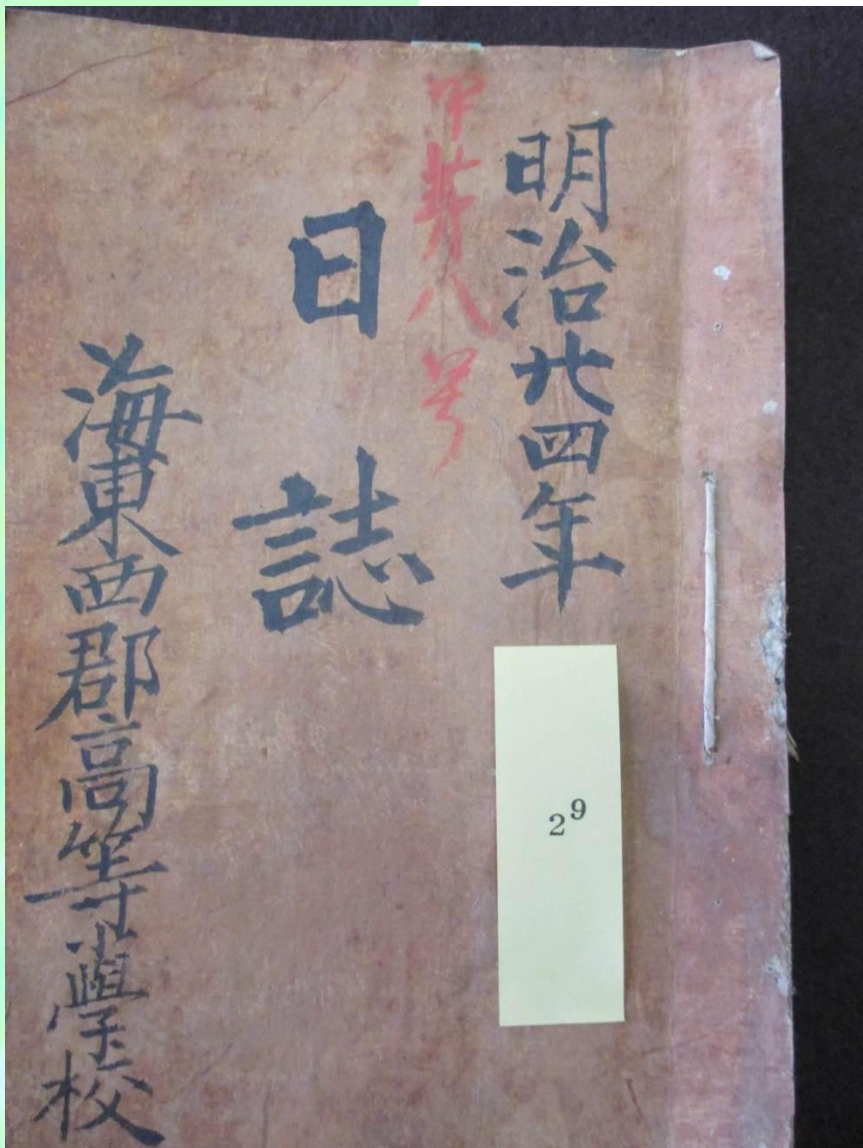 明治廿四年
甲第八号
日誌
海東西郡高等小學校
29